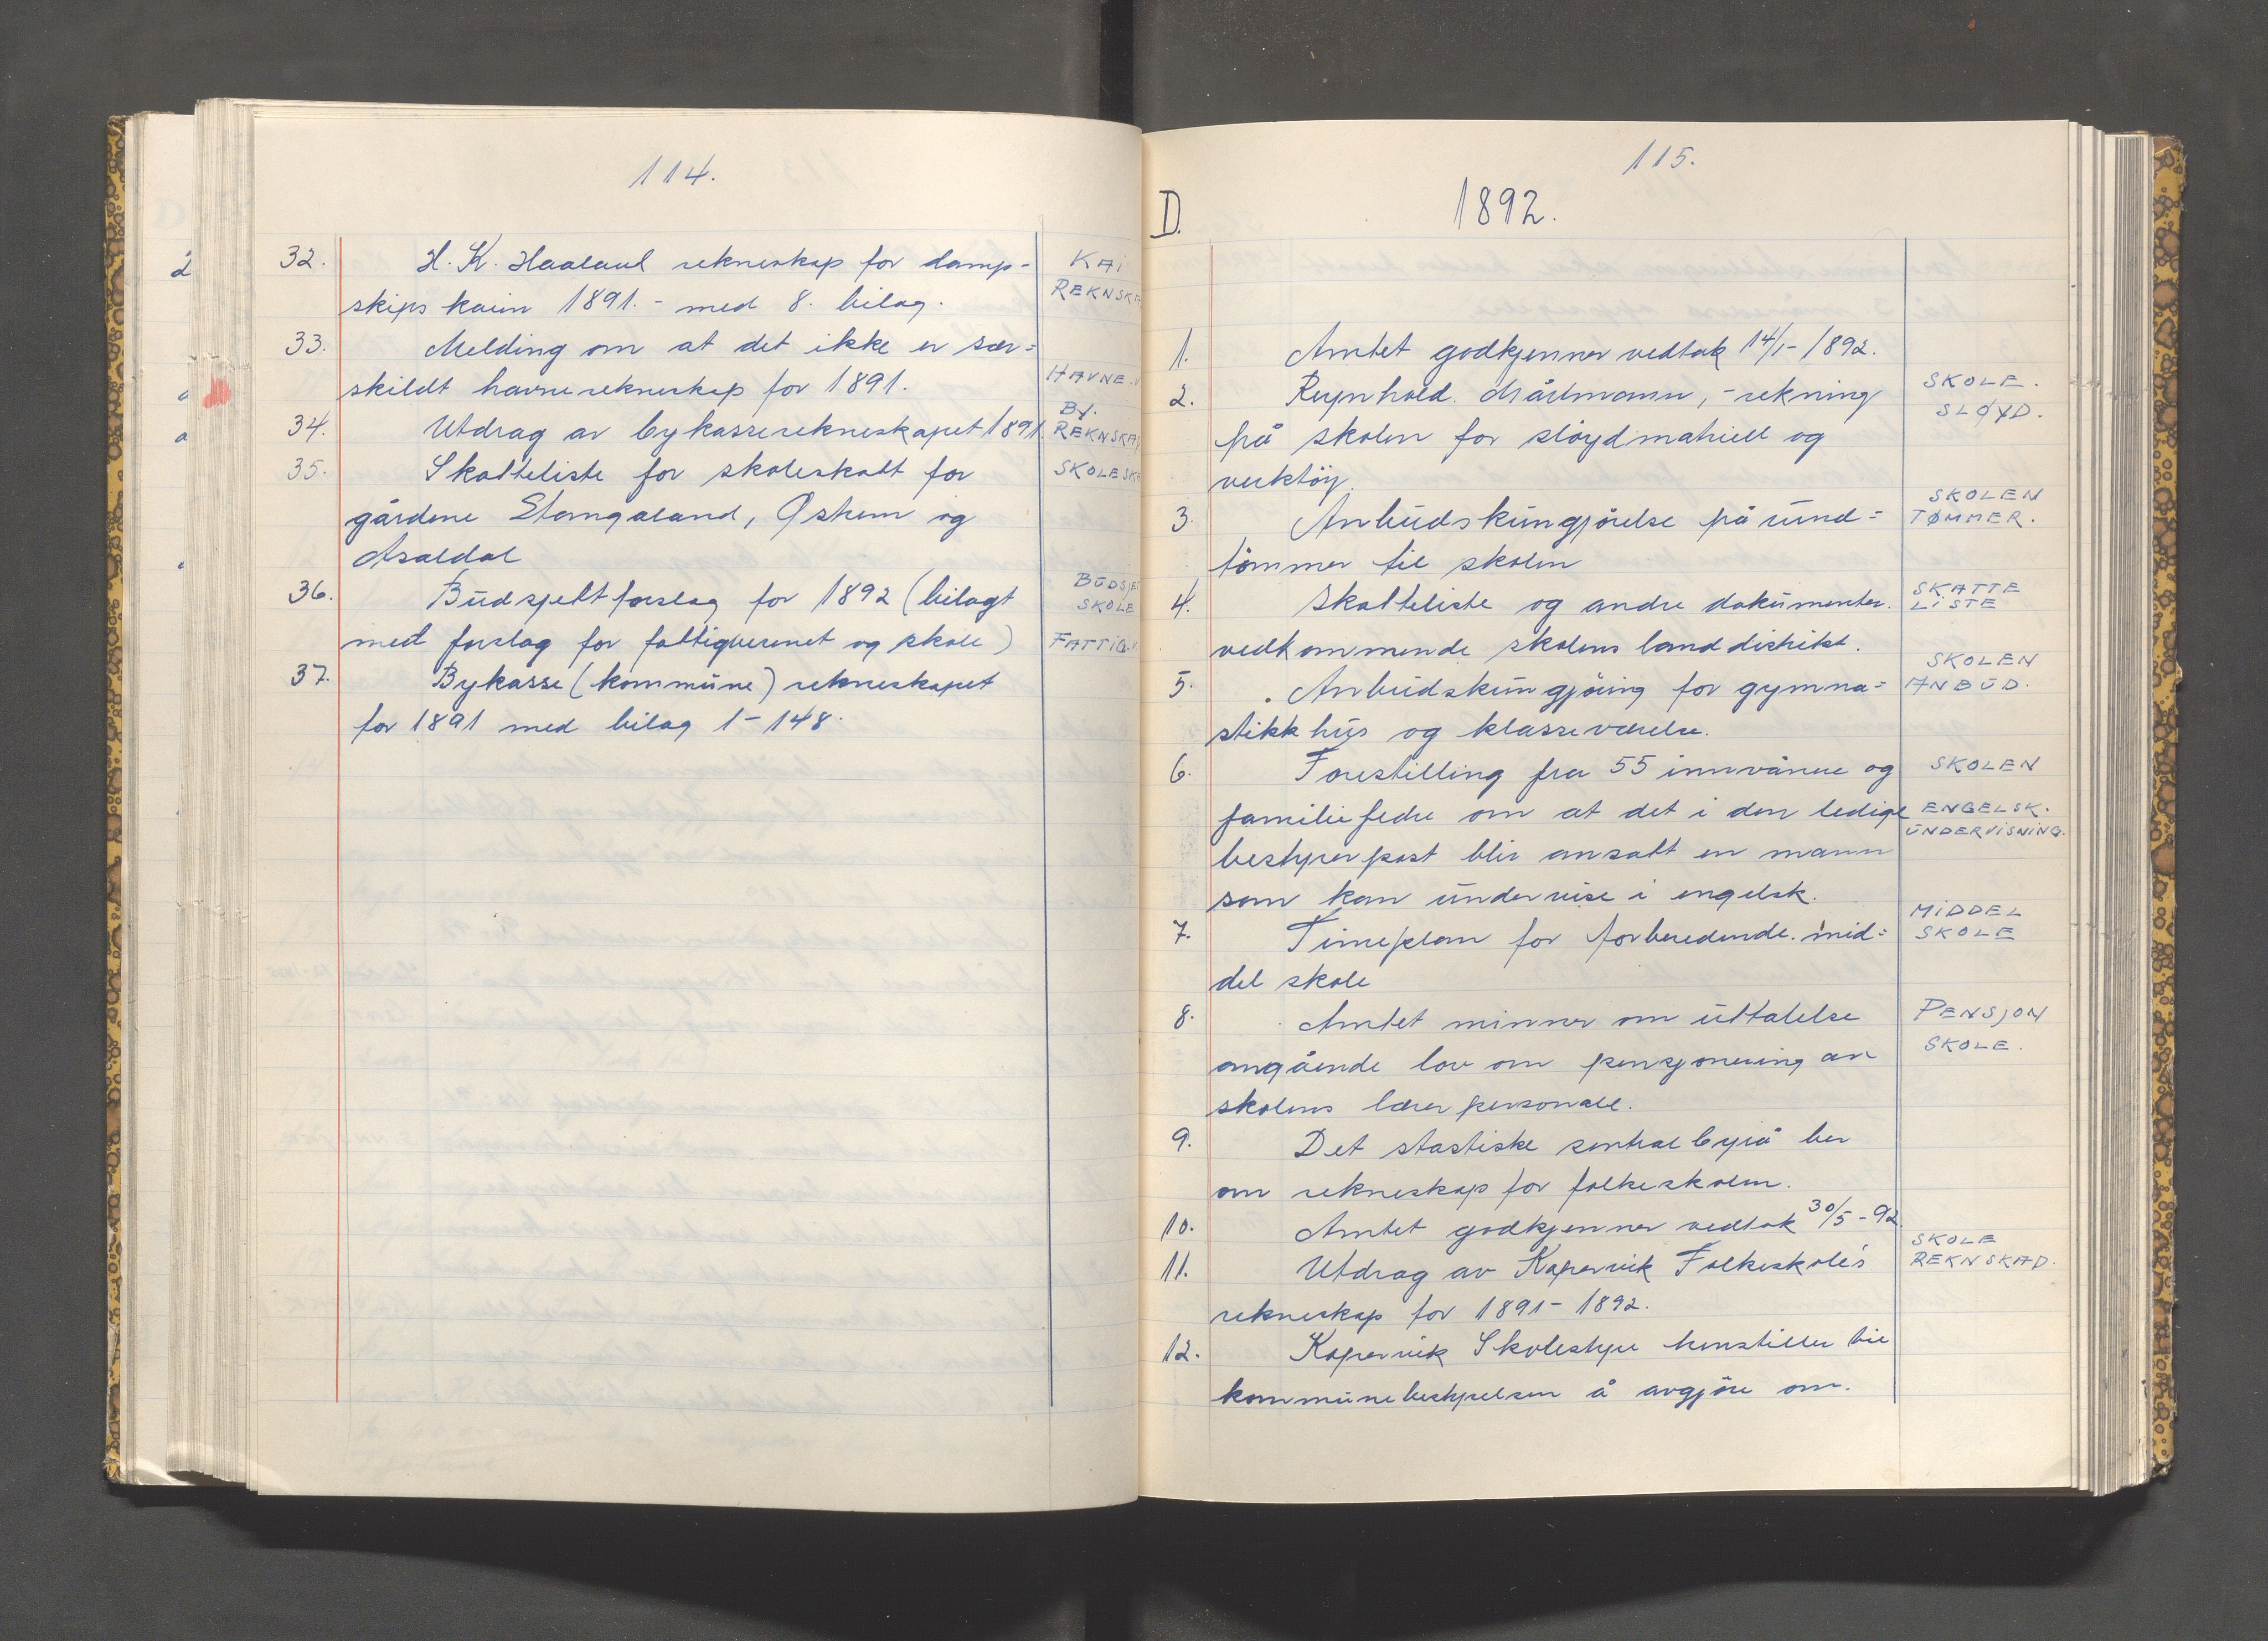 114.
32. H. K. Haaland rekneskap for damp- KAI
skips kaien 1891. - med 8. bilag. REKNSKA
33. Melding om at det ikke er sær=
skildt havnerekneskap for 1891. HAVNE.
34. Utdrag av bykasserekneskapet 1891 BY. REKNSKA
35. Skatteliste for skoleskatt for SKOLESKA
gårdene Stangaland, Østrem og
Asaldal
36. Budsjettforslag for 1892 (bilagt BUDSJE
med forslag for fattigvesenet og skole) SKOLE FATTIG.
37. Bykasse (kommune) rekneskapet
for 1891 med bilag 1 - 148.
115.
D. 1892.
1. Amtet godkjenner vedtak 14/1 - 1892.
2. Reynhold. Mårtmann, - rekning SKOLE.
på skolen for sløydmatriell og SLØYD.
verktøy.
3. Anbudskungjørelse på rund= SKOLEN
tømmer til skolen TØMMER.
4. Skatteliste og andre dokumenter. SKATTE
vedkommende skolens landdistrikt. LISTE
5. Anbudskungjøring for gymna= SKOLEN ANBUD.
stikk hus og klasseværelse.
6. Forestilling fra 55 innvånere og SKOLEN
familiefedre om at det i den ledige ENGELSK.
bestyrerpost blir ansatt en mann UNDERVISNING.
som kan undervise i engelsk.
7. Timeplan for forberedende. mid= MIDDEL
del skole SKOLE
8. Amtet minner om uttalelse PENSJON
angående lov om pensjonering av SKOLE.
skolens lærer personale.
9. Det stastiske sentralbyrå ber
om rekneskap for folkeskolen.
10. Amtet godkjenner vedtak 30/5 - 92.
11. Utdrag av Kopervik Folkeskole's SKOLE REKNSKAP.
rekneskap for 1891 - 1892.
12. Kopervik Skolestyre henstiller til
kommunebestyrelsen å avgjøre om.